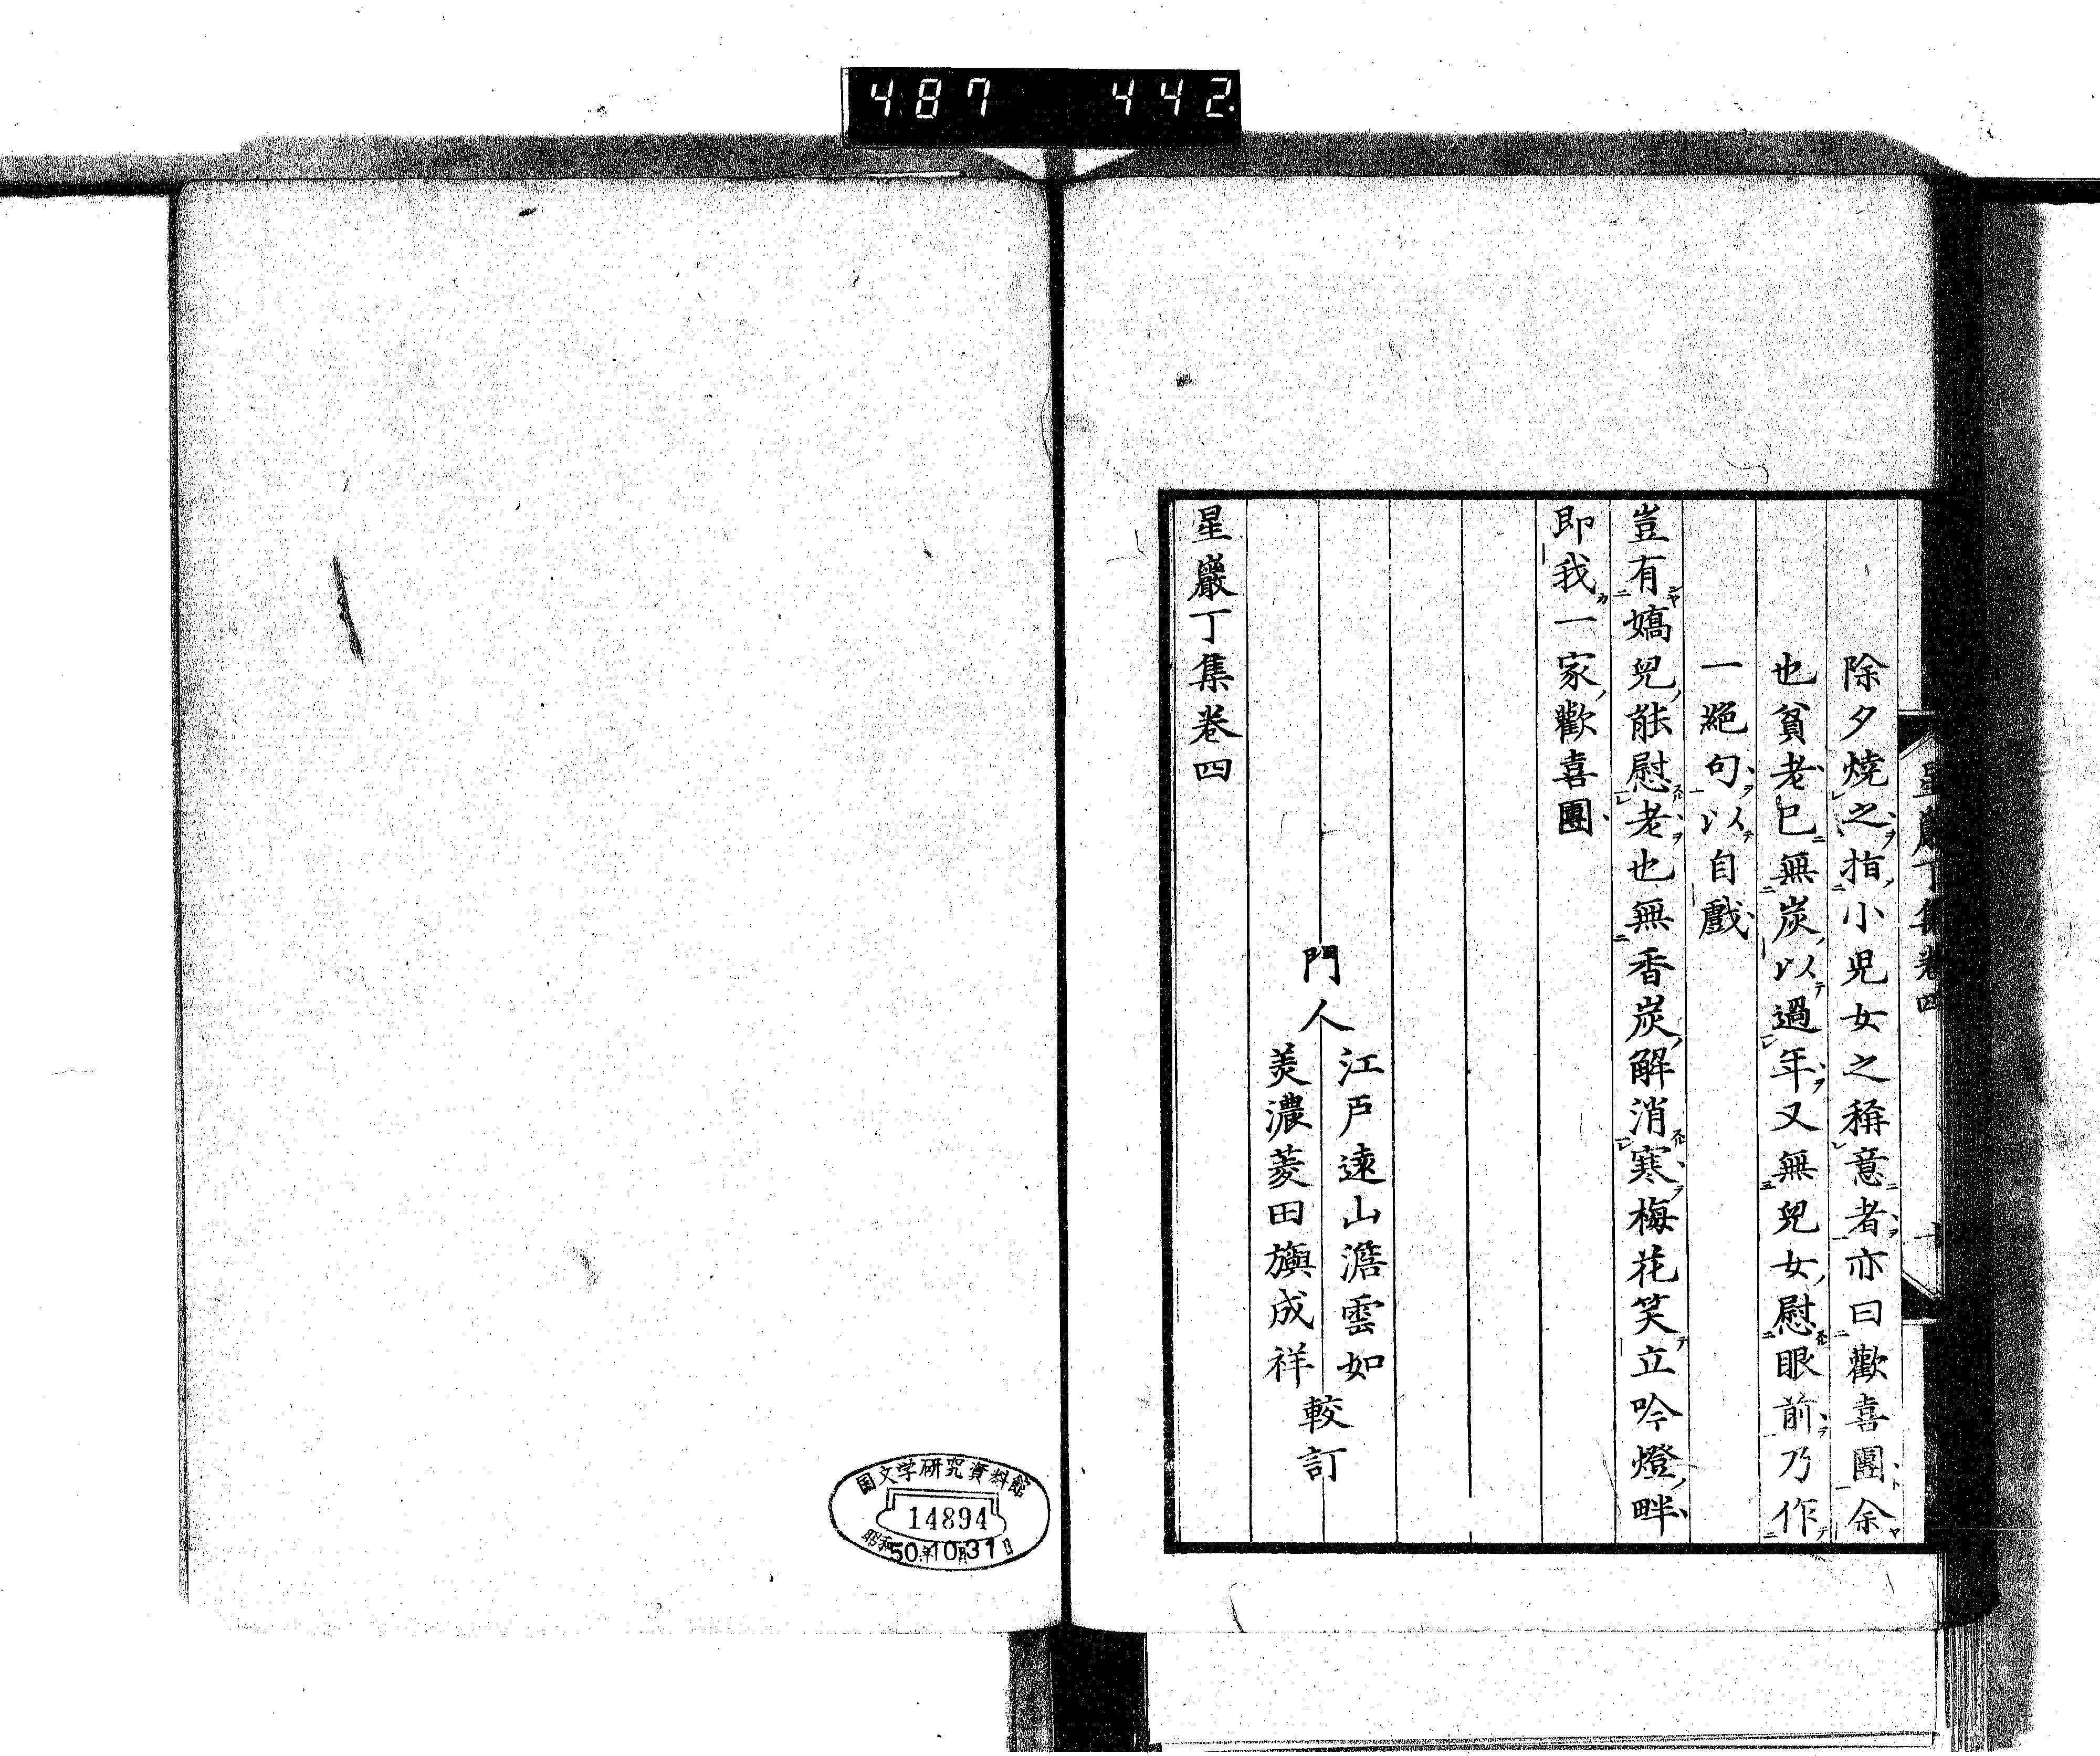 487 442
星巖丁集卷四
除夕燒之指小兒女之稱意者亦曰歡喜團余
也貧老已無炭以過年又無兒女慰眼前乃作
一絕句以自戲
豈有嬌兒能慰老也無香炭解消寒梅花笑立吟燈畔
即我一家歡喜團
門人
江戶遠山澹雲如
美濃菱田旟成祥
較訂
星巖丁集卷四
国文学研究資料館
14894
昭和50年10月31日